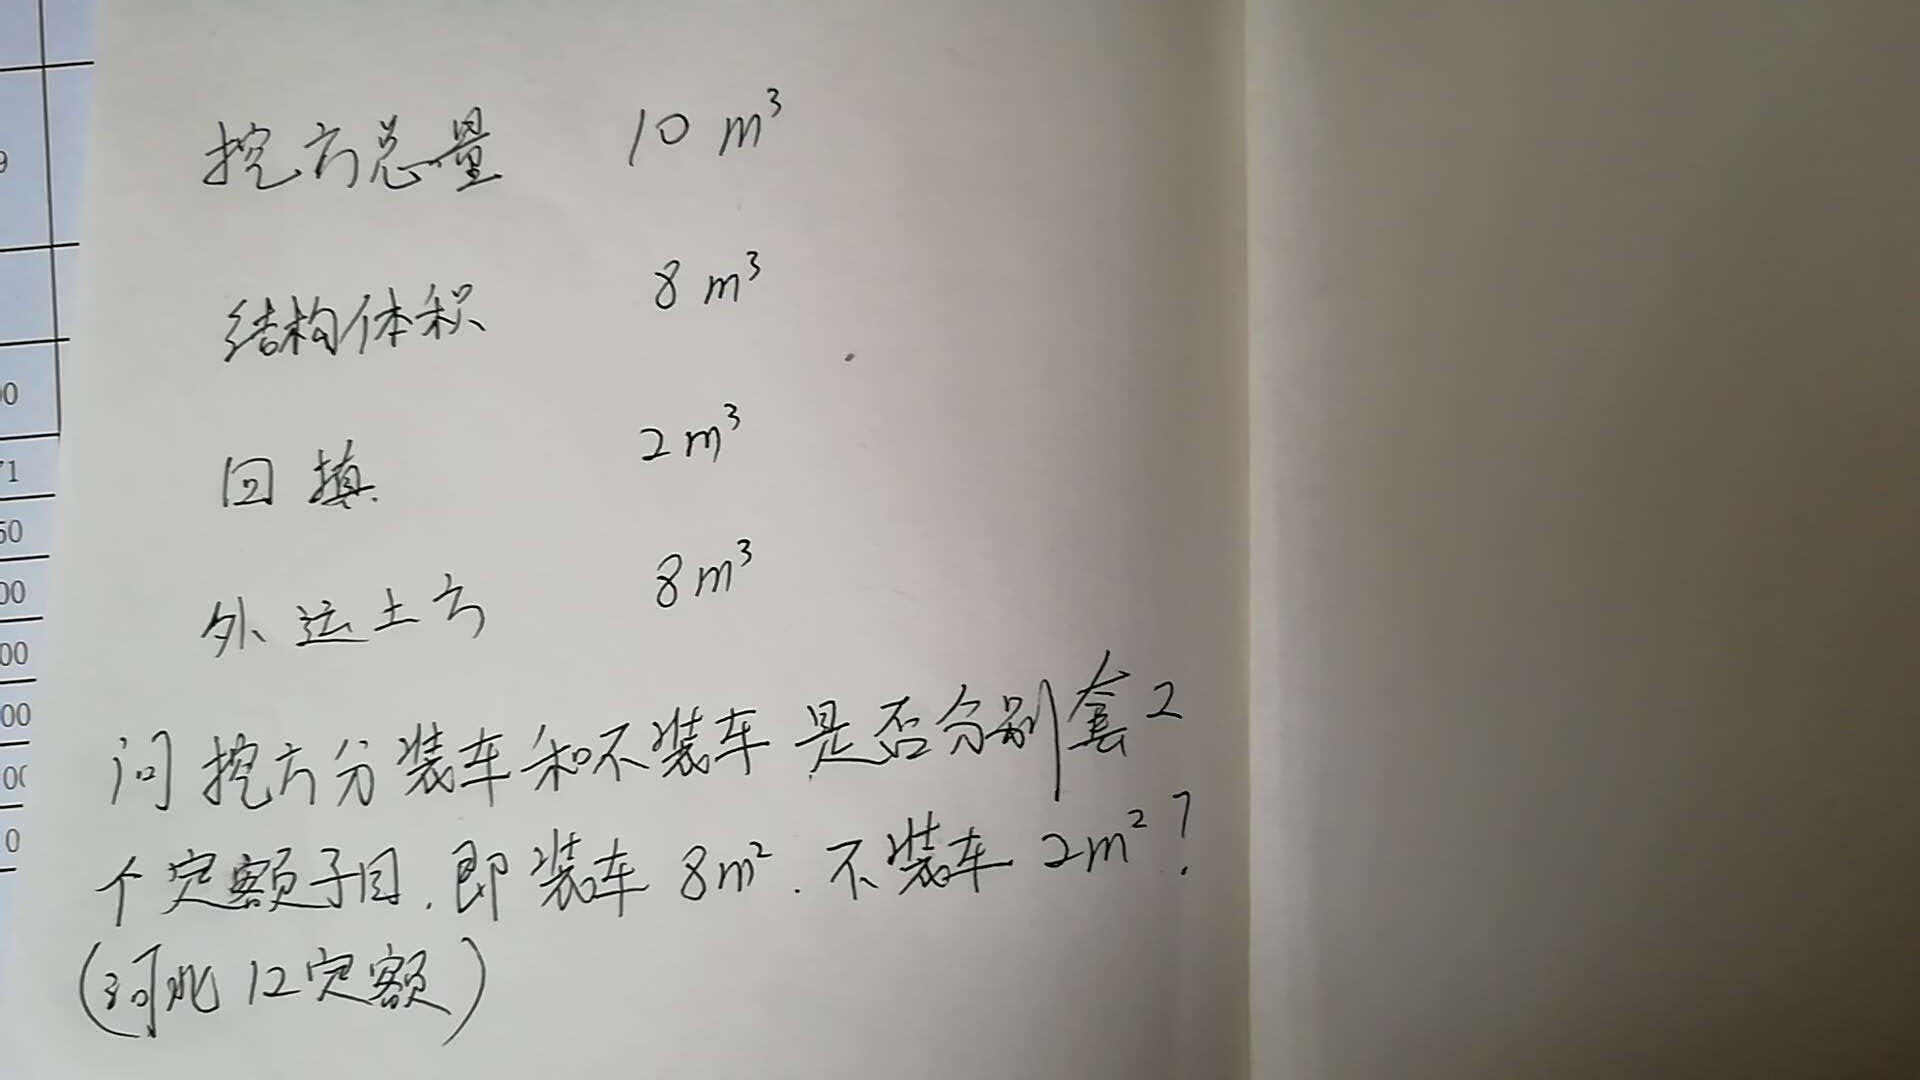 挖方总量 10 m³
结构体积 8 m³
回填 2 m³
外运土方 8 m³
问挖方分装车和不装车是否分别套2
个定额子目.即装车 8m².不装车 2m²?
(河北12定额)
9
00
71
50
00
00
00
00
0